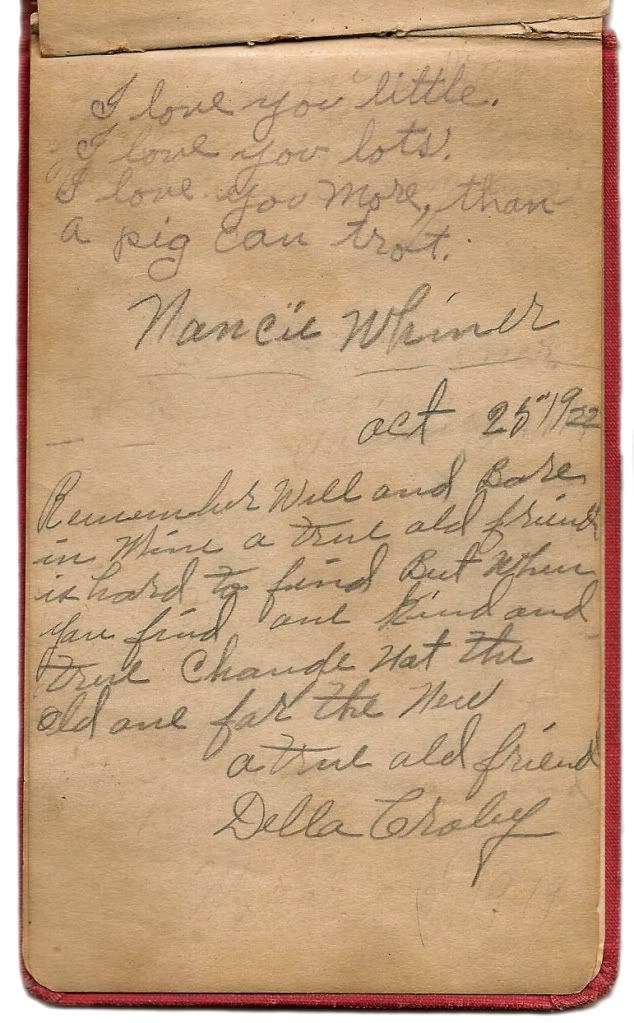 I love you little.
I love you lots.
I love you more, than
a pig can trot.
Nancie Whiner
oct 25" 1922
Remember Well and Bare
in Mine a true old friend
is hard to find But When
you find one kind and
true Change Not the
old one for the New
a true old friend
Della Croley